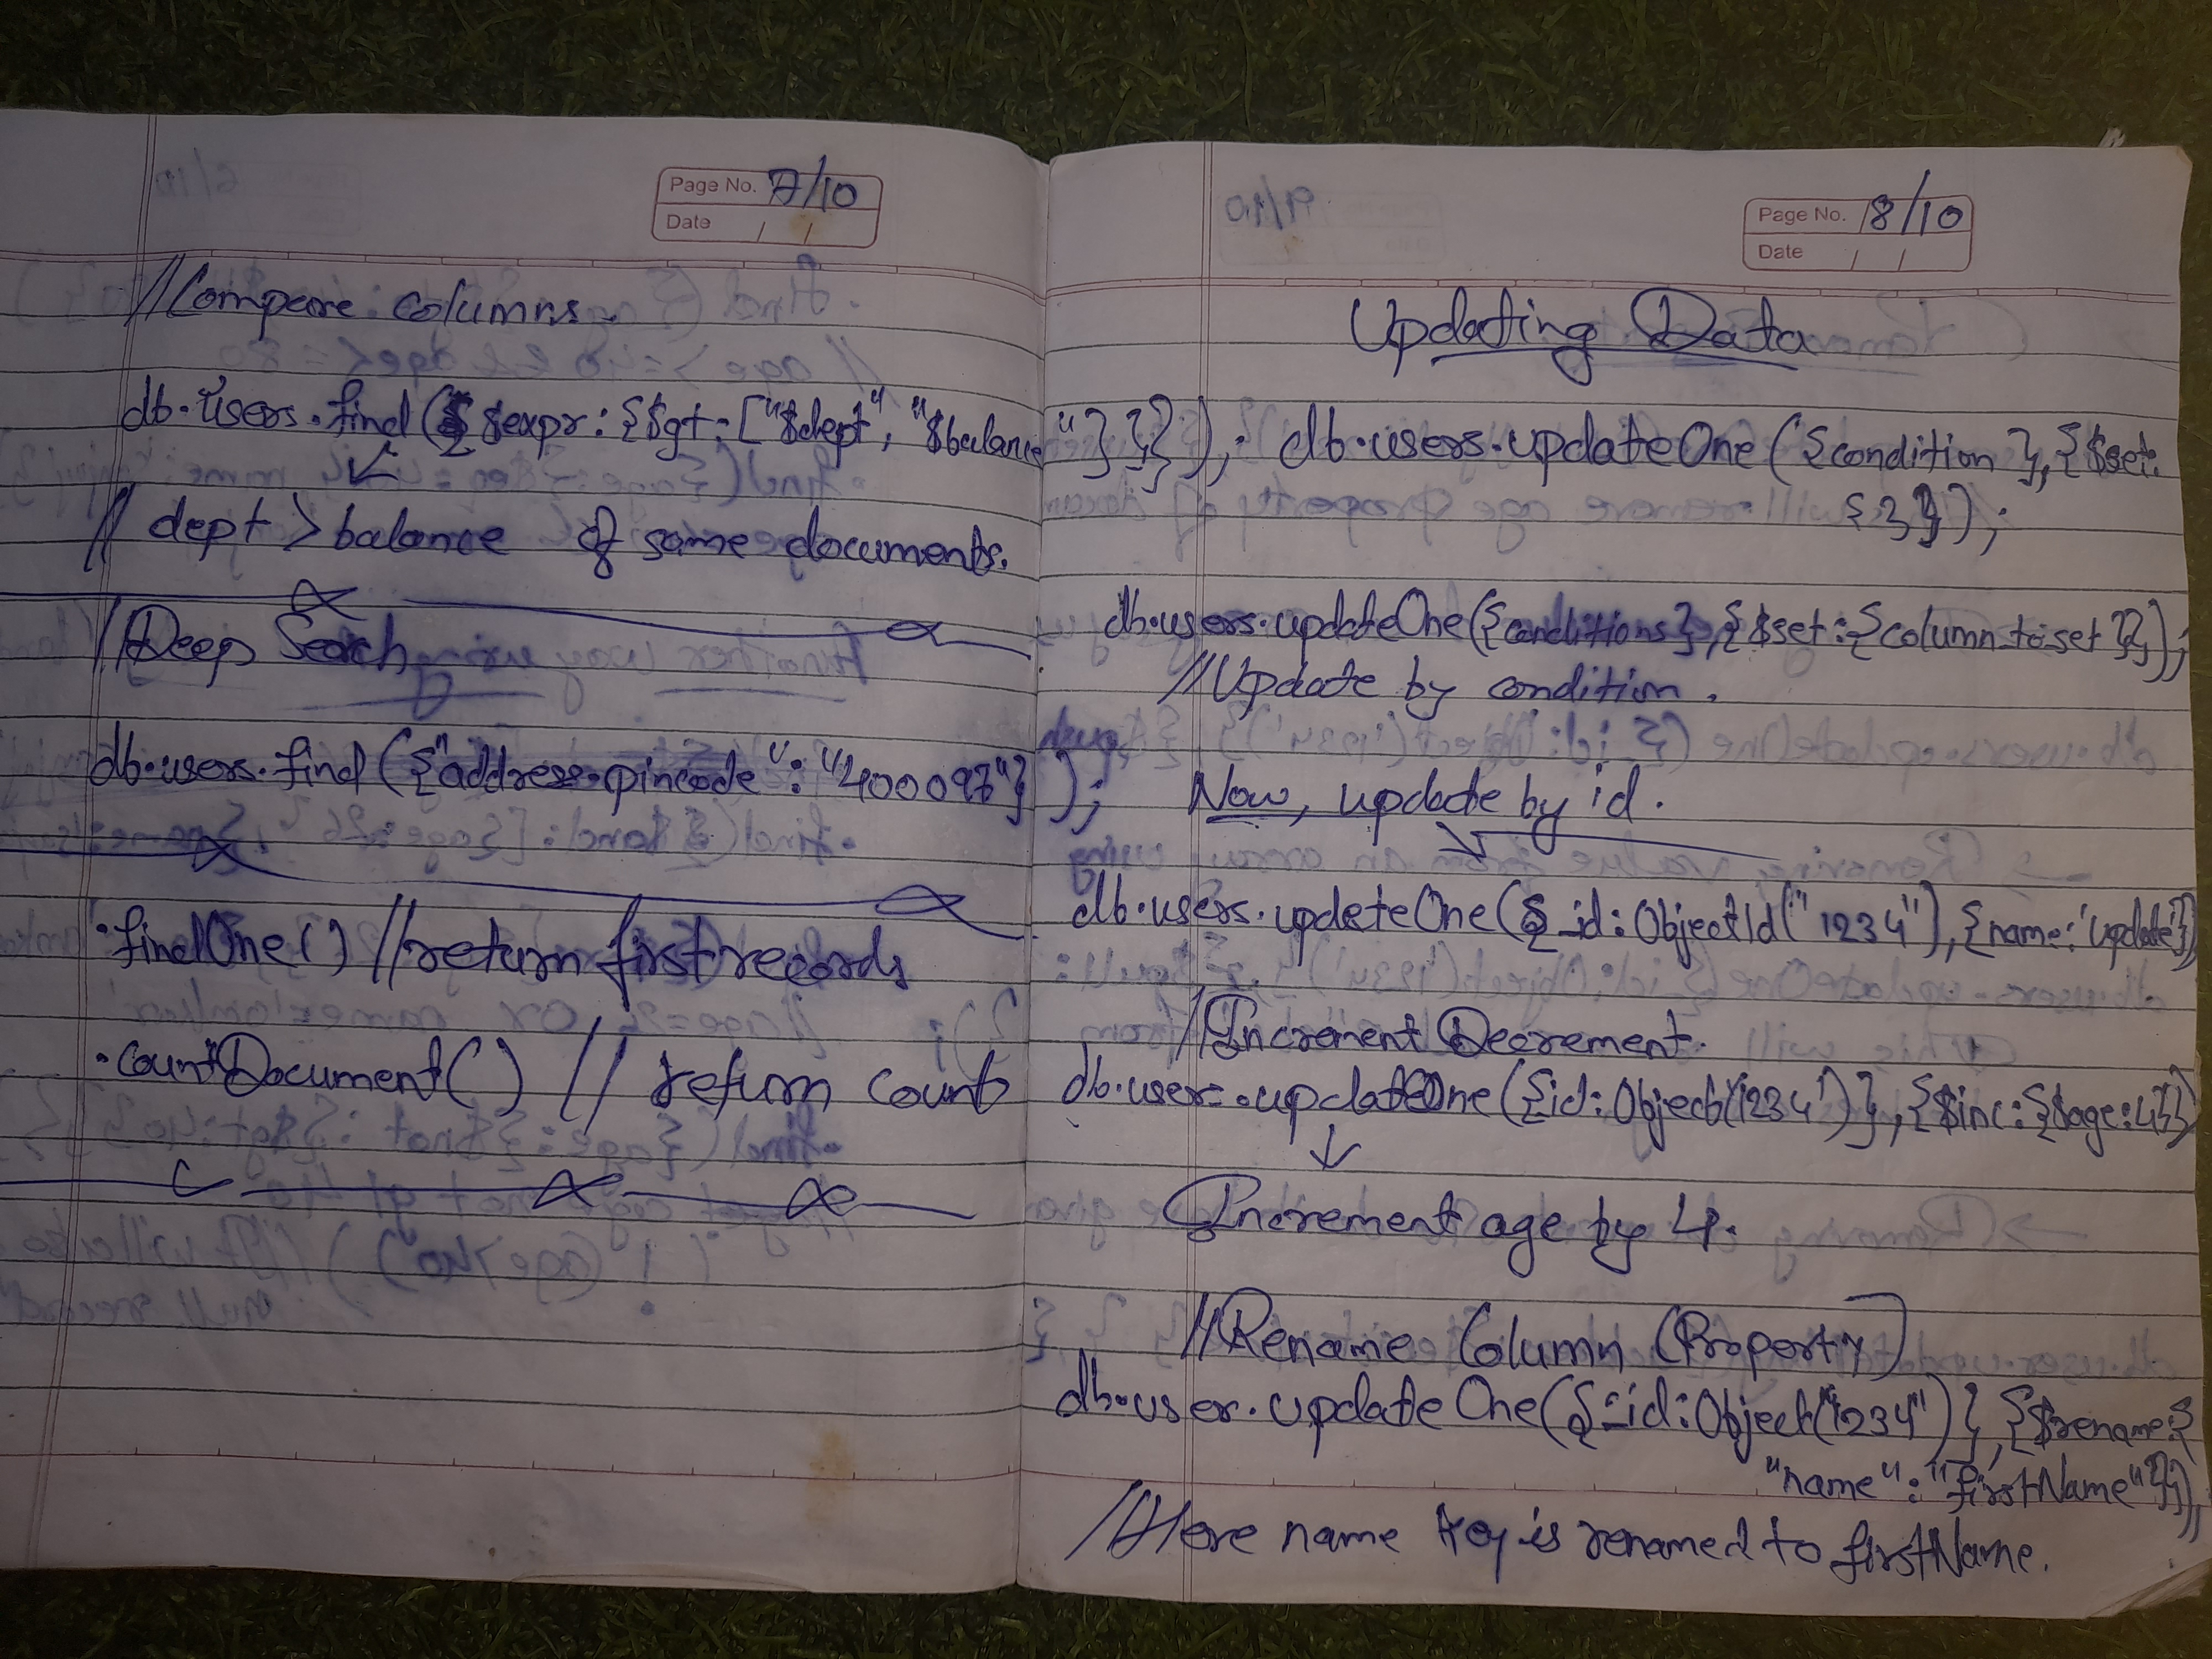 Page No. 7/10
Date / /
// Compare columns.
db.users.find({ $expr: {$gt: ["$dept", "$balance"]}});
// dept > balance of some documents.
// Deep Search
db.users.find({"address.pincode": "400097"});
.findOne() // return first record
.countDocument() // return count
Page No. 8/10
Date / /
Updating Data
db.users.updateOne({condition}, {$set:
{}});
db.users.updateOne({conditions}, {$set:{column to set}});
// Update by condition.
Now, update by id.
db.users.updateOne({_id:ObjectId("1234")},{name:'update'})
// Increment Decrement.
db.users.updateOne({_id:Object("1234")}, {$inc:{$age:4}})
Increment age by 4.
// Rename Column (Property)
db.user.updateOne({_id:Object("1234")}, {$rename:{
"name": "firstName"}})
// Here name key is renamed to firstName.